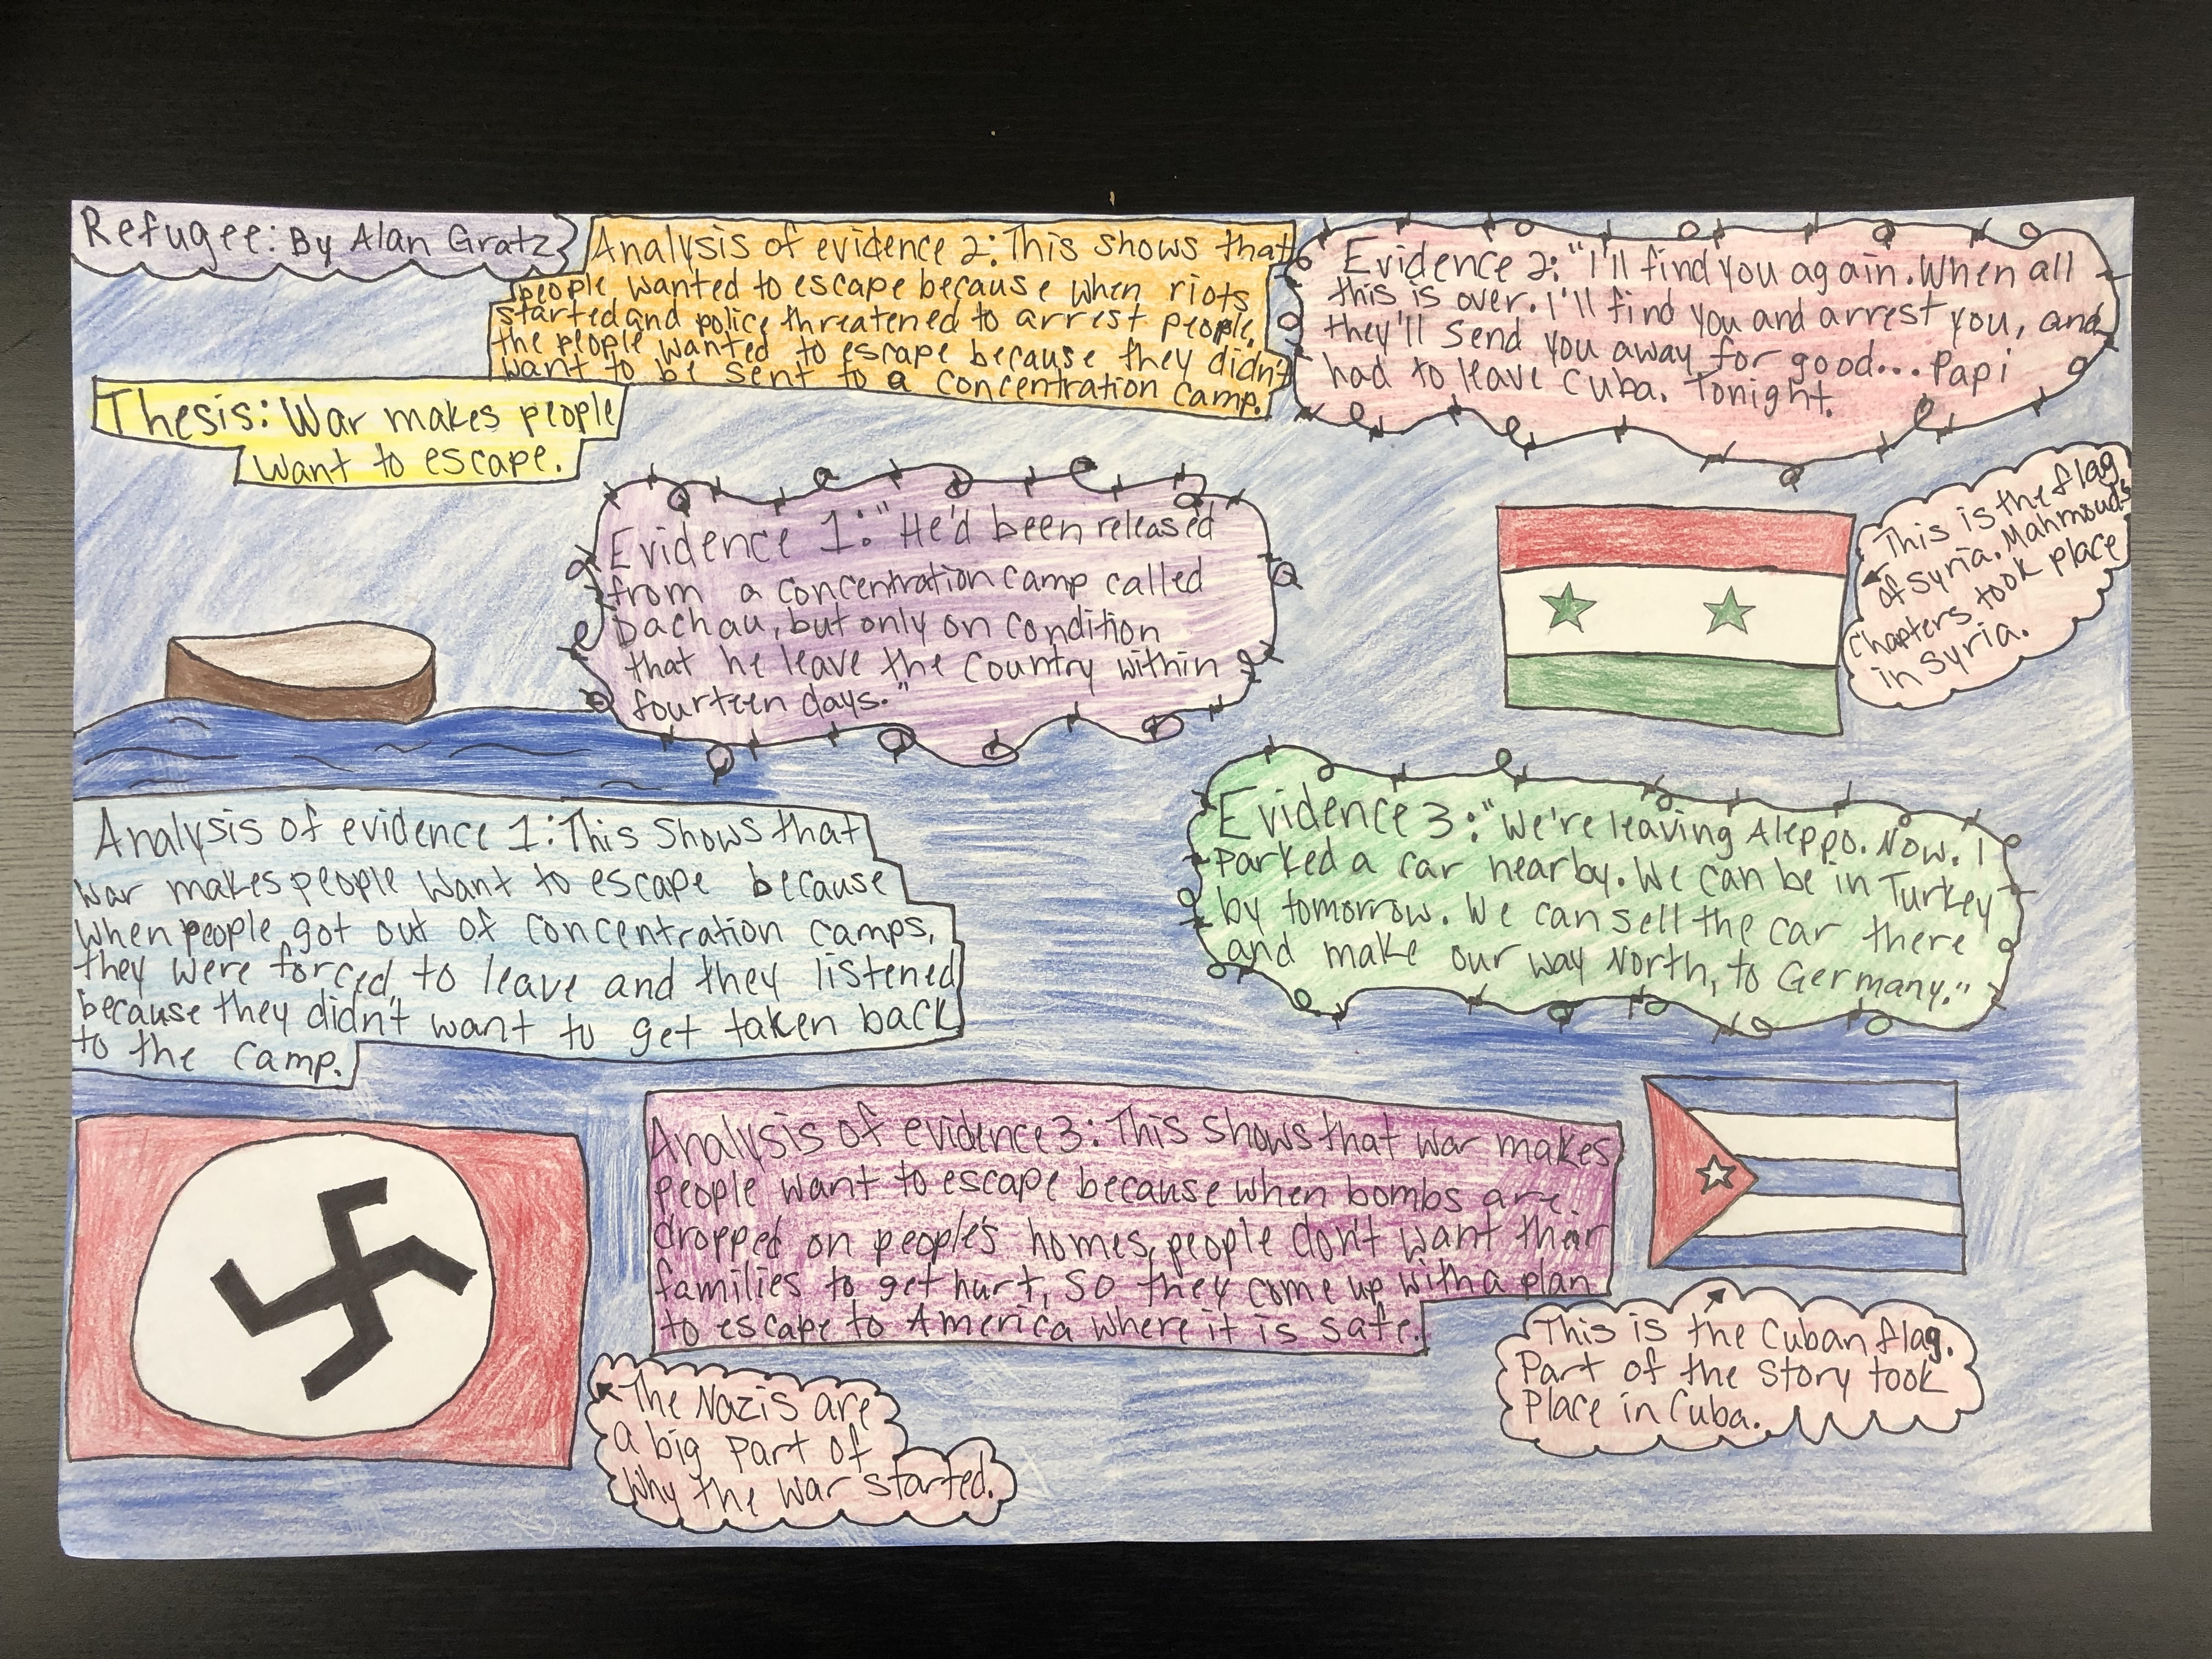 Refugee: By Alan Gratz
Thesis: War makes people
want to escape.
Analysis of evidence 2: This shows that
people wanted to escape because when riots
started and police threatened to arrest people,
the people wanted to escape because they didn't
want to be sent to a concentration camp.
Evidence 2: "I'll find you again. When all
this is over. I'll find you and arrest you, and
they'll send you away for good... Papi
had to leave Cuba. Tonight.
Evidence 1: "He'd been released
from a concentration camp called
Dachau, but only on condition
that he leave the country within
fourteen days."
This is the flag
of Syria. Mahmoud's
Chapters took place
in Syria.
Analysis of evidence 1: This shows that
war makes people want to escape because
when people got out of concentration camps,
they were forced to leave and they listened
because they didn't want to get taken back
to the camp.
Evidence 3: "We're leaving Aleppo. Now. I
parked a car nearby. We can be in Turkey
by tomorrow. We can sell the car there
and make our way North, to Germany."
Analysis of evidence 3: This shows that war makes
people want to escape because when bombs are
dropped on people's homes, people don't want their
families to get hurt, so they come up with a plan
to escape to America where it is safe.
The Nazis are
a big part of
why the war started.
This is the Cuban flag.
Part of the story took
Place in Cuba.